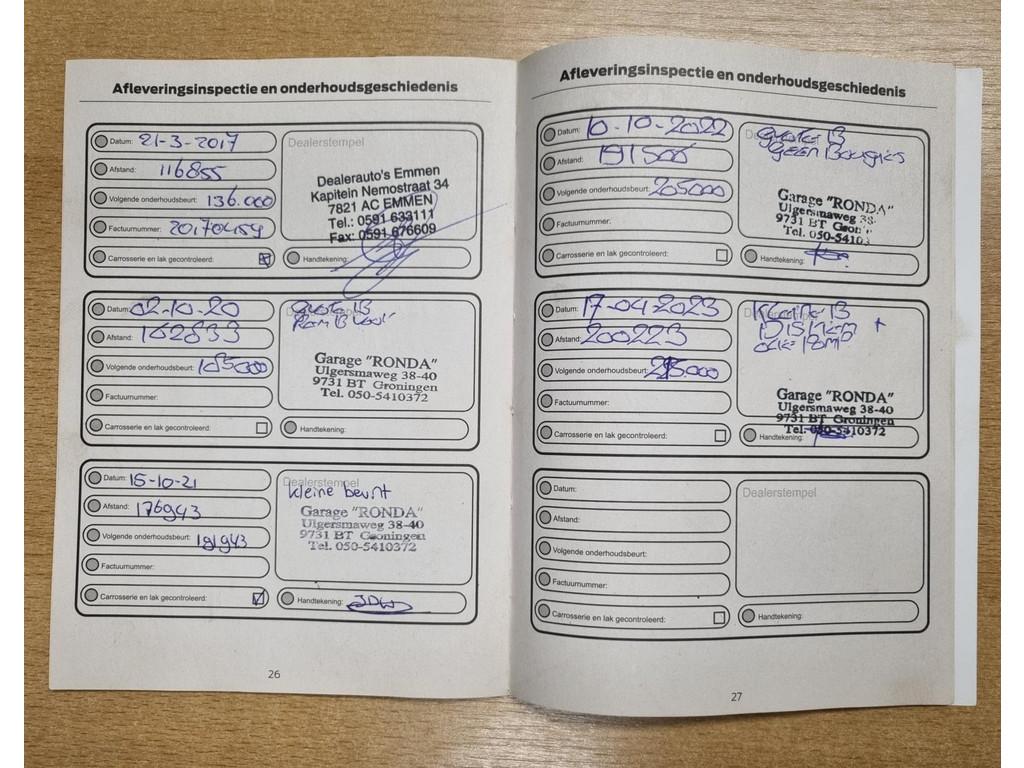 Afleveringsinspectie en onderhoudsgeschiedenis
Datum: 21-3-2017
Afstand: 116855
Volgende onderhoudsbeurt: 136.000
Factuurnummer: 20170459
Carrosserie en lak gecontroleerd:
Dealerstempel
Dealerauto's Emmen
Kapitein Nemostraat 34
7821 AC EMMEN
Tel.: 0591 633111
Fax: 0591 676609
Handtekening:
Datum: 02-10-20
Afstand: 162833
Volgende onderhoudsbeurt: 185000
Factuurnummer:
Carrosserie en lak gecontroleerd:
Grote B
Garage "RONDA"
Ulgersmaweg 38-40
9731 BT Groningen
Tel. 050-5410372
Handtekening:
Datum: 15-10-21
Afstand: 176943
Volgende onderhoudsbeurt: 191943
Factuurnummer:
Carrosserie en lak gecontroleerd:
Dealerstempel
kleine beurt
Garage "RONDA"
Ulgersmaweg 38-40
9731 BT Groningen
Tel. 050-5410372
Handtekening: JDW
26
Afleveringsinspectie en onderhoudsgeschiedenis
Datum: 10-10-2022
Afstand: 191500
Volgende onderhoudsbeurt: 205000
Factuurnummer:
Carrosserie en lak gecontroleerd:
Grote B
Geen Bougies
Garage "RONDA"
Ulgersmaweg 38-
9731 BT Gron
Tel. 050-5410
Handtekening:
Datum: 17-04-2023
Afstand: 200223
Volgende onderhoudsbeurt: 215.000
Factuurnummer:
Carrosserie en lak gecontroleerd:
Kleine B
Garage "RONDA"
Ulgersmaweg 38-40
9731 BT Groningen
Tel. 050-5410372
Handtekening:
Datum:
Afstand:
Volgende onderhoudsbeurt:
Factuurnummer:
Carrosserie en lak gecontroleerd:
Dealerstempel
Handtekening:
27